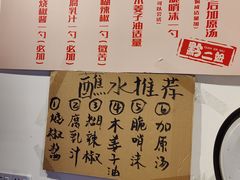 后加原汤
脆哨沫（勺）
木姜子油适量
煳辣椒（勺）（微苦）
腐乳汁（勺）必加
烧椒酱（勺）必加
黔二姐
蘸水推荐
①烧椒酱
②腐乳汁
③煳辣椒
④木姜子油
⑤脆哨沫
⑥加原汤